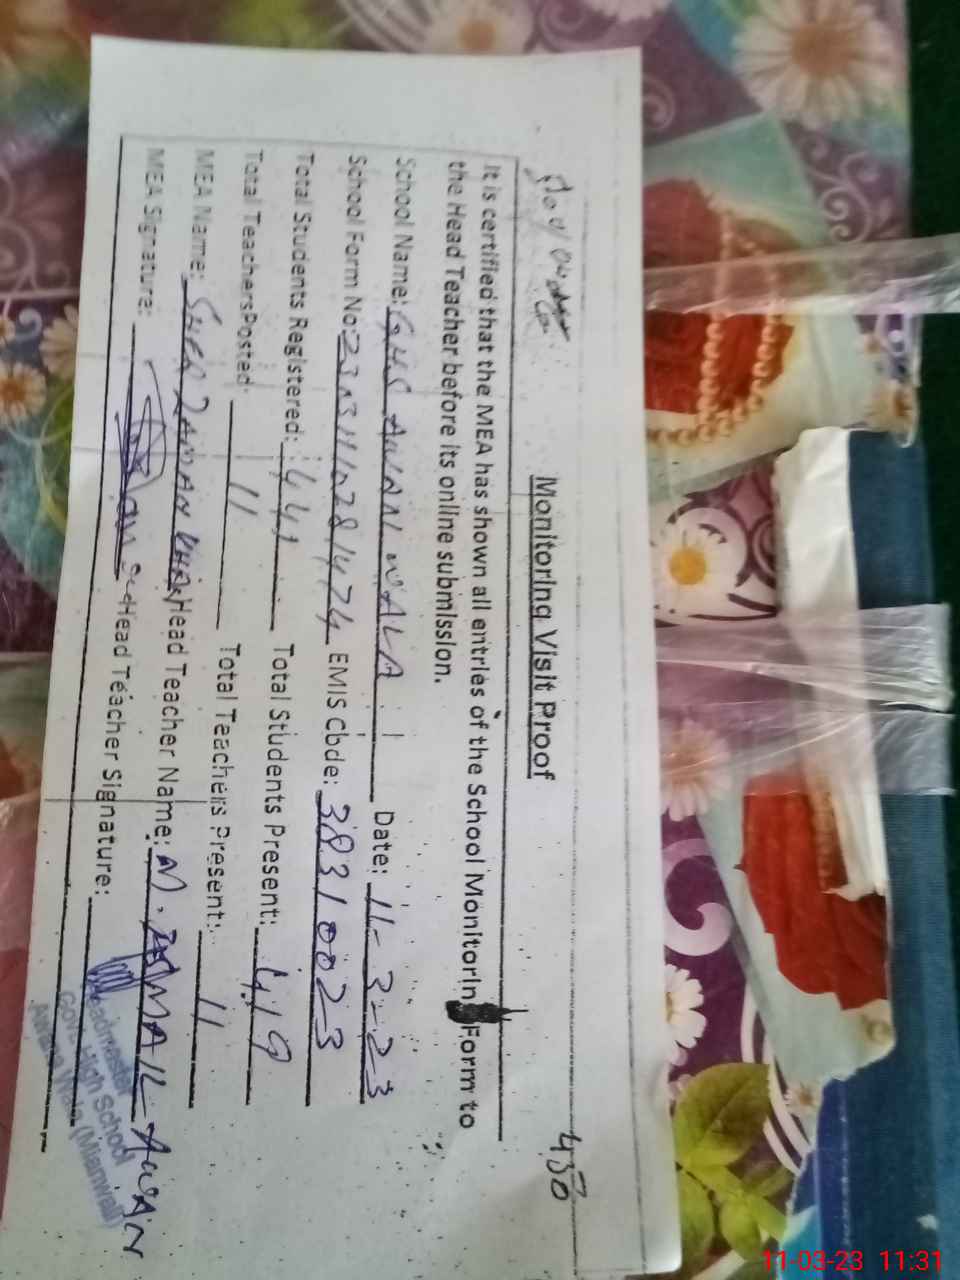 430
Monitoring Visit Proof
It is certified that the MEA has shown all entries of the School Monitorin Form to
the Head Teacher before its online submission.
School Name: GHS AWAN WALA Date: 11-3-23
School Form No: EMIS Code: 38310023
Total Students Registered: 441 Total Students Present: 419
Total Teachers Posted: 11 Total Teachers Present: 11
MEA Name: SHER ZAMAN KHAN Head Teacher Name: M. AWAN
MEA Signature: Head Teacher Signature:
Headmaster
Govt. High School
Awana Wala (Mianwali)
11-03-23 11:31